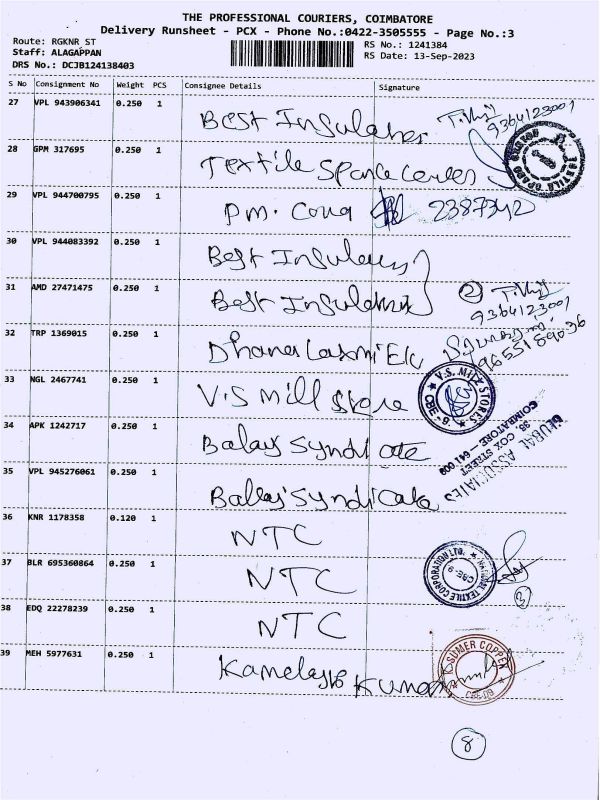 THE PROFESSIONAL COURIERS, COIMBATORE
Delivery Runsheet - PCX - Phone No.:0422-3505555 - Page No.:3
Route: RGKNR_ST RS No.: 1241384
Staff: ALAGAPPAN RS Date: 13-Sep-2023
DRS No.: DCJB124138403
S No Consignment No Weight PCS Consignee Details Signature
27 VPL 943906341 0.250 1 Best Insulaters
9364123001
28 GPM 317695 0.250 1 Textile Spares
29 VPL 944700795 0.250 1 Pm. 2387342
30 VPL 944083392 0.250 1 Best
31 AMD 27471475 0.250 1 Best
9364123001
32 TRP 1369015 0.250 1 Dhanalaxmi
9655189036
33 NGL 2467741 0.250 1 V.S Mill Store
V.S. MILL STORES
CBE-9
34 APK 1242717 0.250 1 Balaji Syndicate
GLOBAL ASSOCIATES
COX STREET
COIMBATORE - 641 009
35 VPL 945276061 0.250 1 Syndicate
36 KNR 1178358 0.120 1 NTC
37 BLR 695360864 0.250 1 NTC
NATIONAL TEXTILE CORPORATION LTD.
CBE-9
3
38 EDQ 22278239 0.250 1 NTC
39 MEH 5977631 0.250 1 Kumar
SUMER COPPER
8